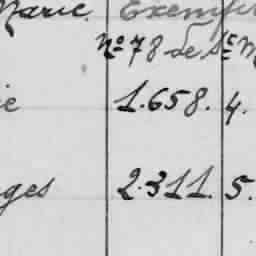 Marie. Exempt
Nº 78 de Sᵗ M
ie 1.658. 4.
ges 2.311. 5.